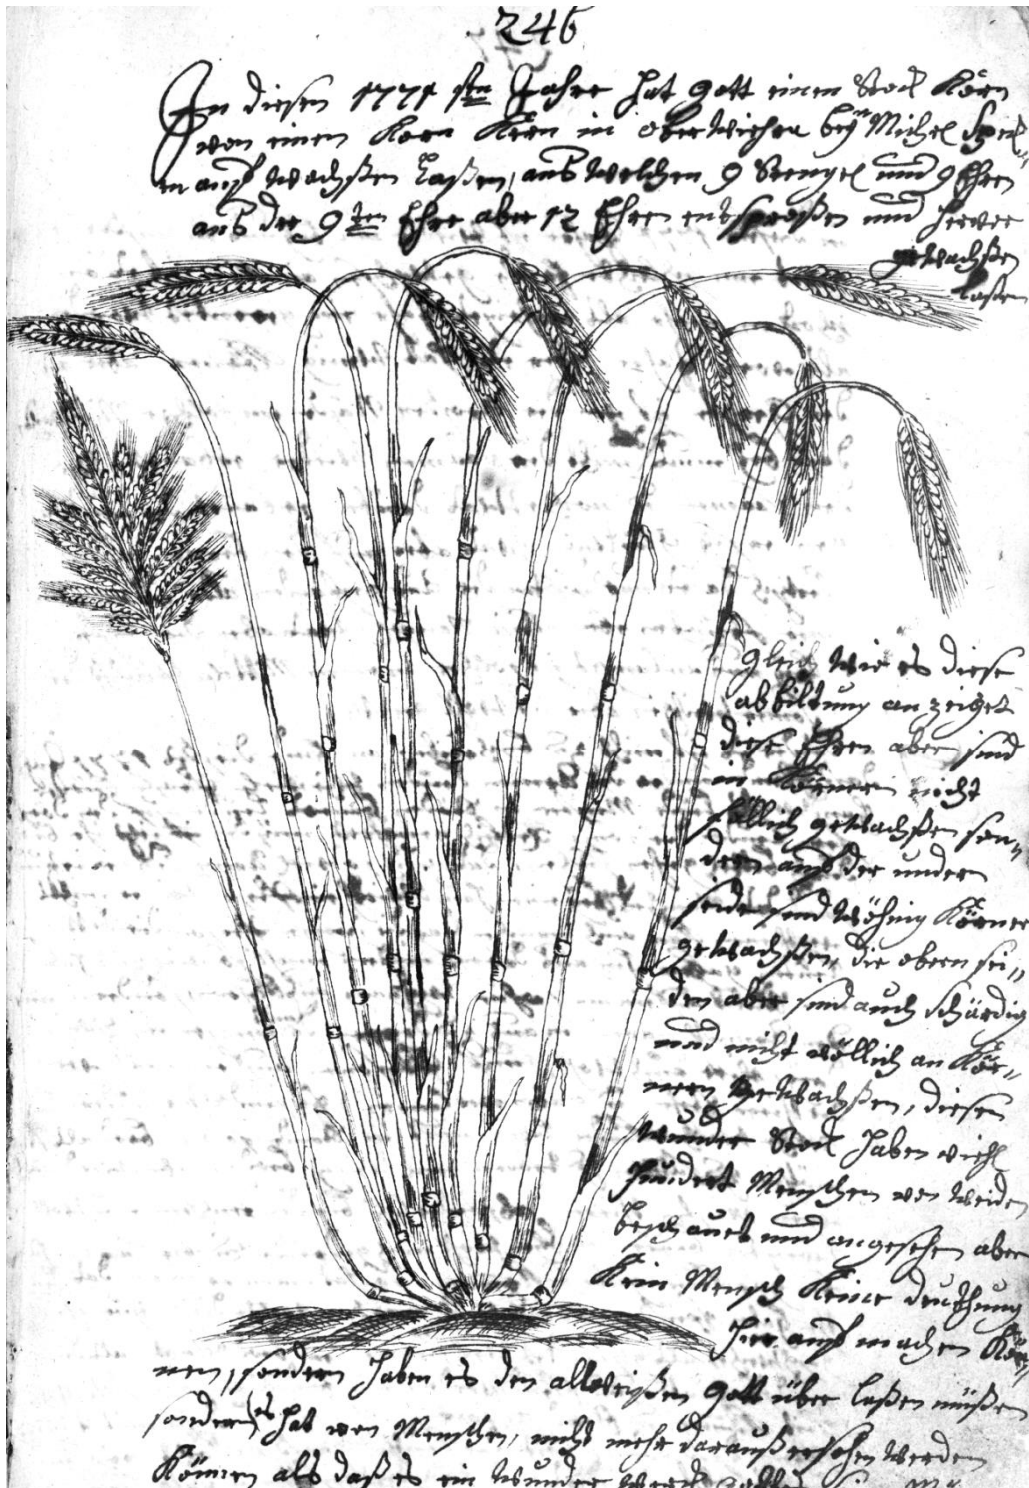 246
In diesen 1771 sten Jahre hat Gott einen Stock Korn
von einen Korn Kern in ober Wiehra bey Michel
auf wachßen laßen, aus welchen 9 Stengel und 9 Ehren
aus der 9ten Ehre aber 12 Ehren entsproßen und hervor
gewachßen
laßen
gleich wie es diese
abbiltung an zeiget
diese Ehren aber sind
in Körnern nicht
föllich gewachßen son„
dern auf der undern
seide sind wöhnig Körner
gewachßen, die obern sei„
den aber sind auch schärdig
und nicht völlich an Kör„
nern gewachßen, diesen
wunder Stock haben viehl
hundert Menschen von weiden
beschauet und angesehen aber
Kein Mensch Keine deuthung
hier auf machen Kön
nen, sondern haben es den allweißen Gott über laßen müßen
sondern es hat von Menschen, nicht mehr darauß ersehen werden
Können als daß es ein wunder werck